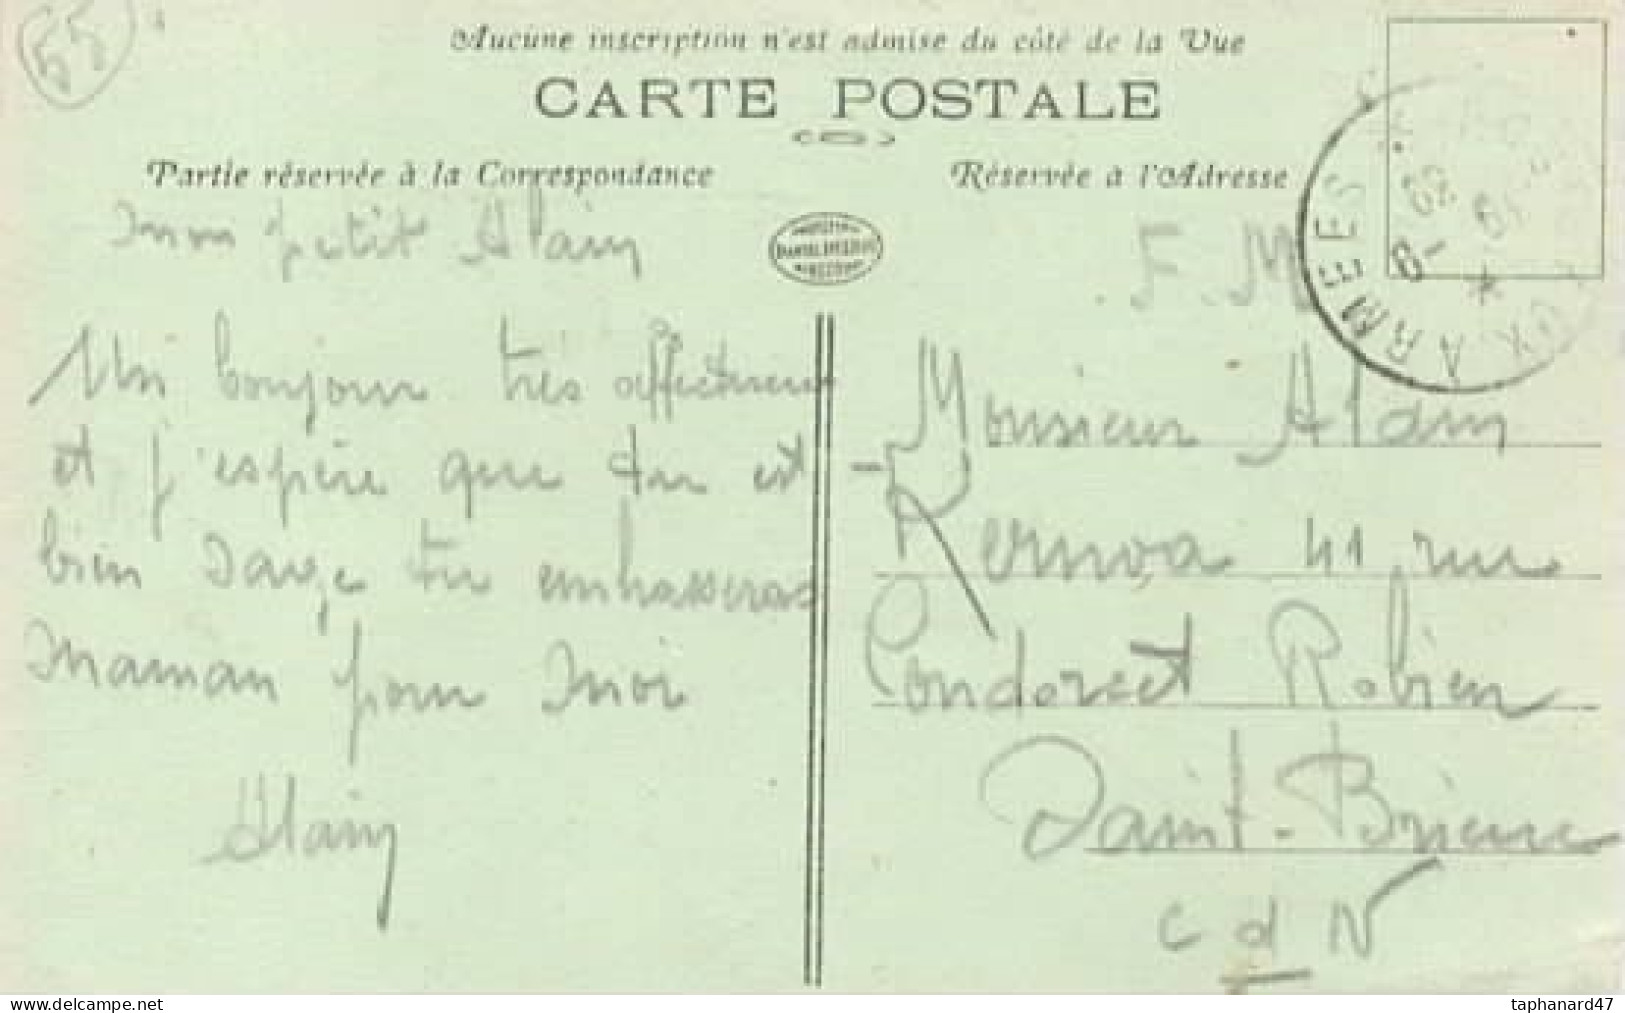 55
Aucune inscription n'est admise du côté de la Vue
CARTE POSTALE
Partie réservée à la Correspondance
Réservée à l'Adresse
mon petit Alain
Un bonjour très affectueux
et j'espère que tu est
bien sage tu embrasseras
maman pour moi
Alain
F. M
AUX ARMEES
Monsieur Alain
Kernoa 41 rue
Condorcet Robien
Saint-Brieuc
C d N
www.delcampe.net
taphanard47